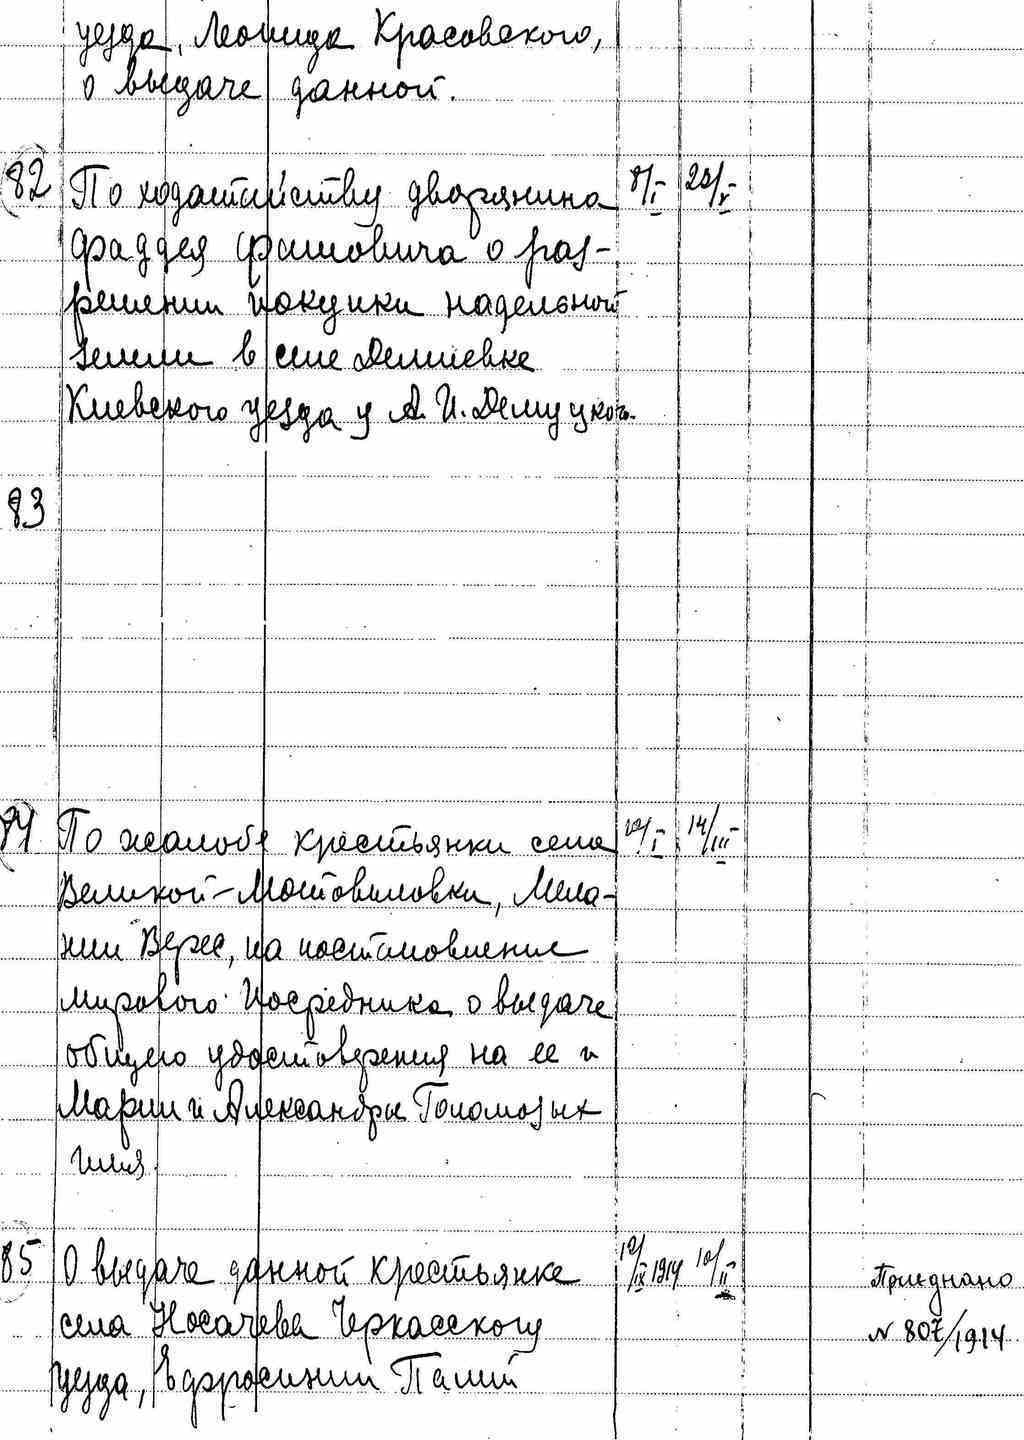 уезда, Леонида Красовского,
о выдаче данной.
82 По ходатайству дворянина 8/I 20/V
Фаддея Фашовича о раз-
решении покупки надельной
земли в селе Демиевке
Киевского уезда у А. И. Демуцкого.
83
84 По жалобе крестьянки села /I 14/III
Великой-Мотовиловки, Мела-
нии Верес, на постановление
мирового посредника о выдаче
общего удостоверения на ее и
Марии и Александры Голомозых
имя.
85 О выдаче данной крестьянке 10/IX 1914 10/II
села Носачева Черкасского Приеднано
уезда, Евфросинии Палий N 807/1914